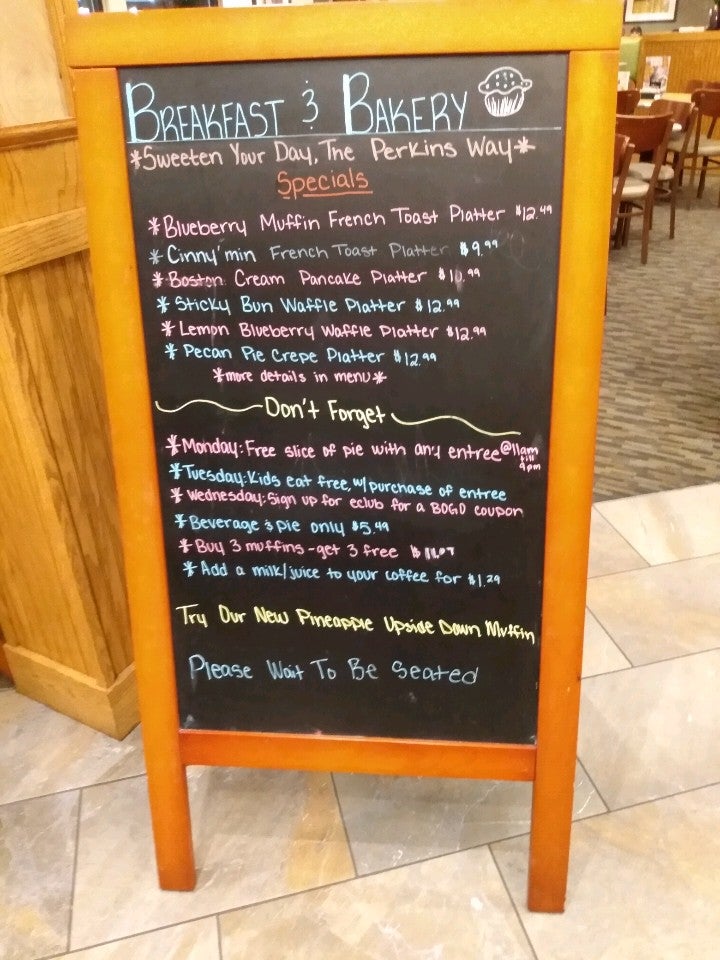 Breakfast & Bakery
*Sweeten Your Day, The Perkins Way*
Specials
*Blueberry Muffin French Toast Platter $12.49
*Cinny'min French Toast Platter $9.99
*Boston Cream Pancake Platter $10.99
*Sticky Bun Waffle Platter $12.99
*Lemon Blueberry Waffle Platter $12.99
*Pecan Pie Crepe Platter $12.99
*more details in menu*
Don't Forget
*Monday: Free slice of pie with any entree @11am till 4pm
*Tuesday: Kids eat free, w/ purchase of entree
*Wednesday: Sign up for eclub for a BOGO coupon
*Beverage & pie only $5.49
*Buy 3 muffins - get 3 free
*Add a milk/juice to your coffee for $1.29
Try Our New Pineapple Upside Down Muffin
Please Wait To Be Seated